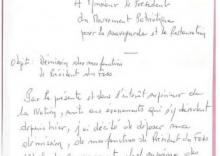 A Monsieur le Président
du Mouvement Patriotique
pour la sauvegarde et la Restauration
Objet : Démission de mes fonctions
de Président du Faso
Par la présente et dans l'intérêt supérieur de
la Nation, suite aux évènements qui s'y déroulent
depuis hier, j'ai décidé de déposer ma
démission, de mes fonctions de Président du Faso